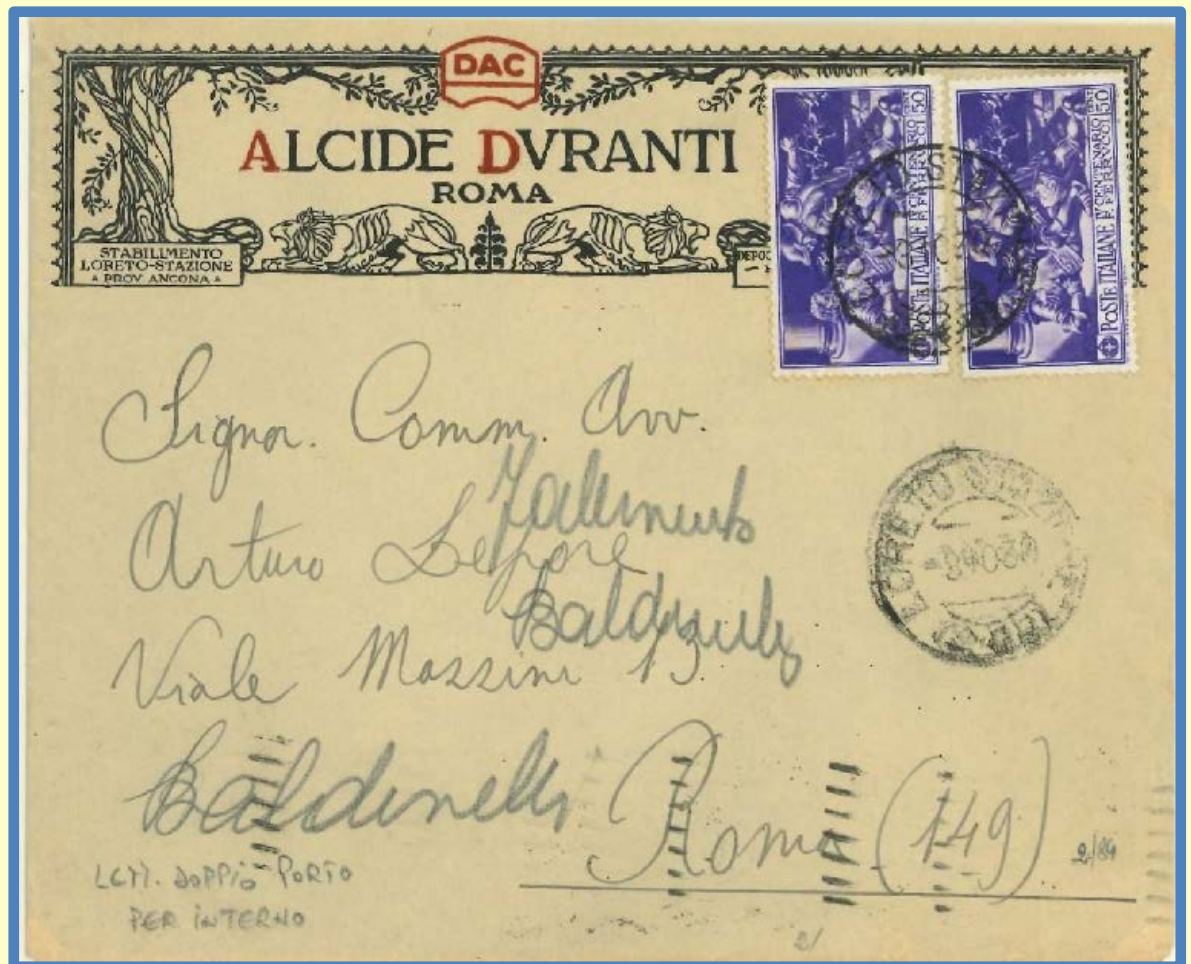 DAC
ALCIDE DVRANTI
ROMA
STABILIMENTO
LORETO-STAZIONE
PROV ANCONA
50
POSTE ITALIANE IV CENTENARIO F. FERRUCCI
50
POSTE ITALIANE IV CENTENARIO F. FERRUCCI
LORETO
Signor. Comm. Avv.
Fallimento
Arturo Lepore
Baldinelli
Viale Mazzini 13.
Baldinelli Roma (149)
2/84
LETT. DOPPIO PORTO
PER INTERNO
2/